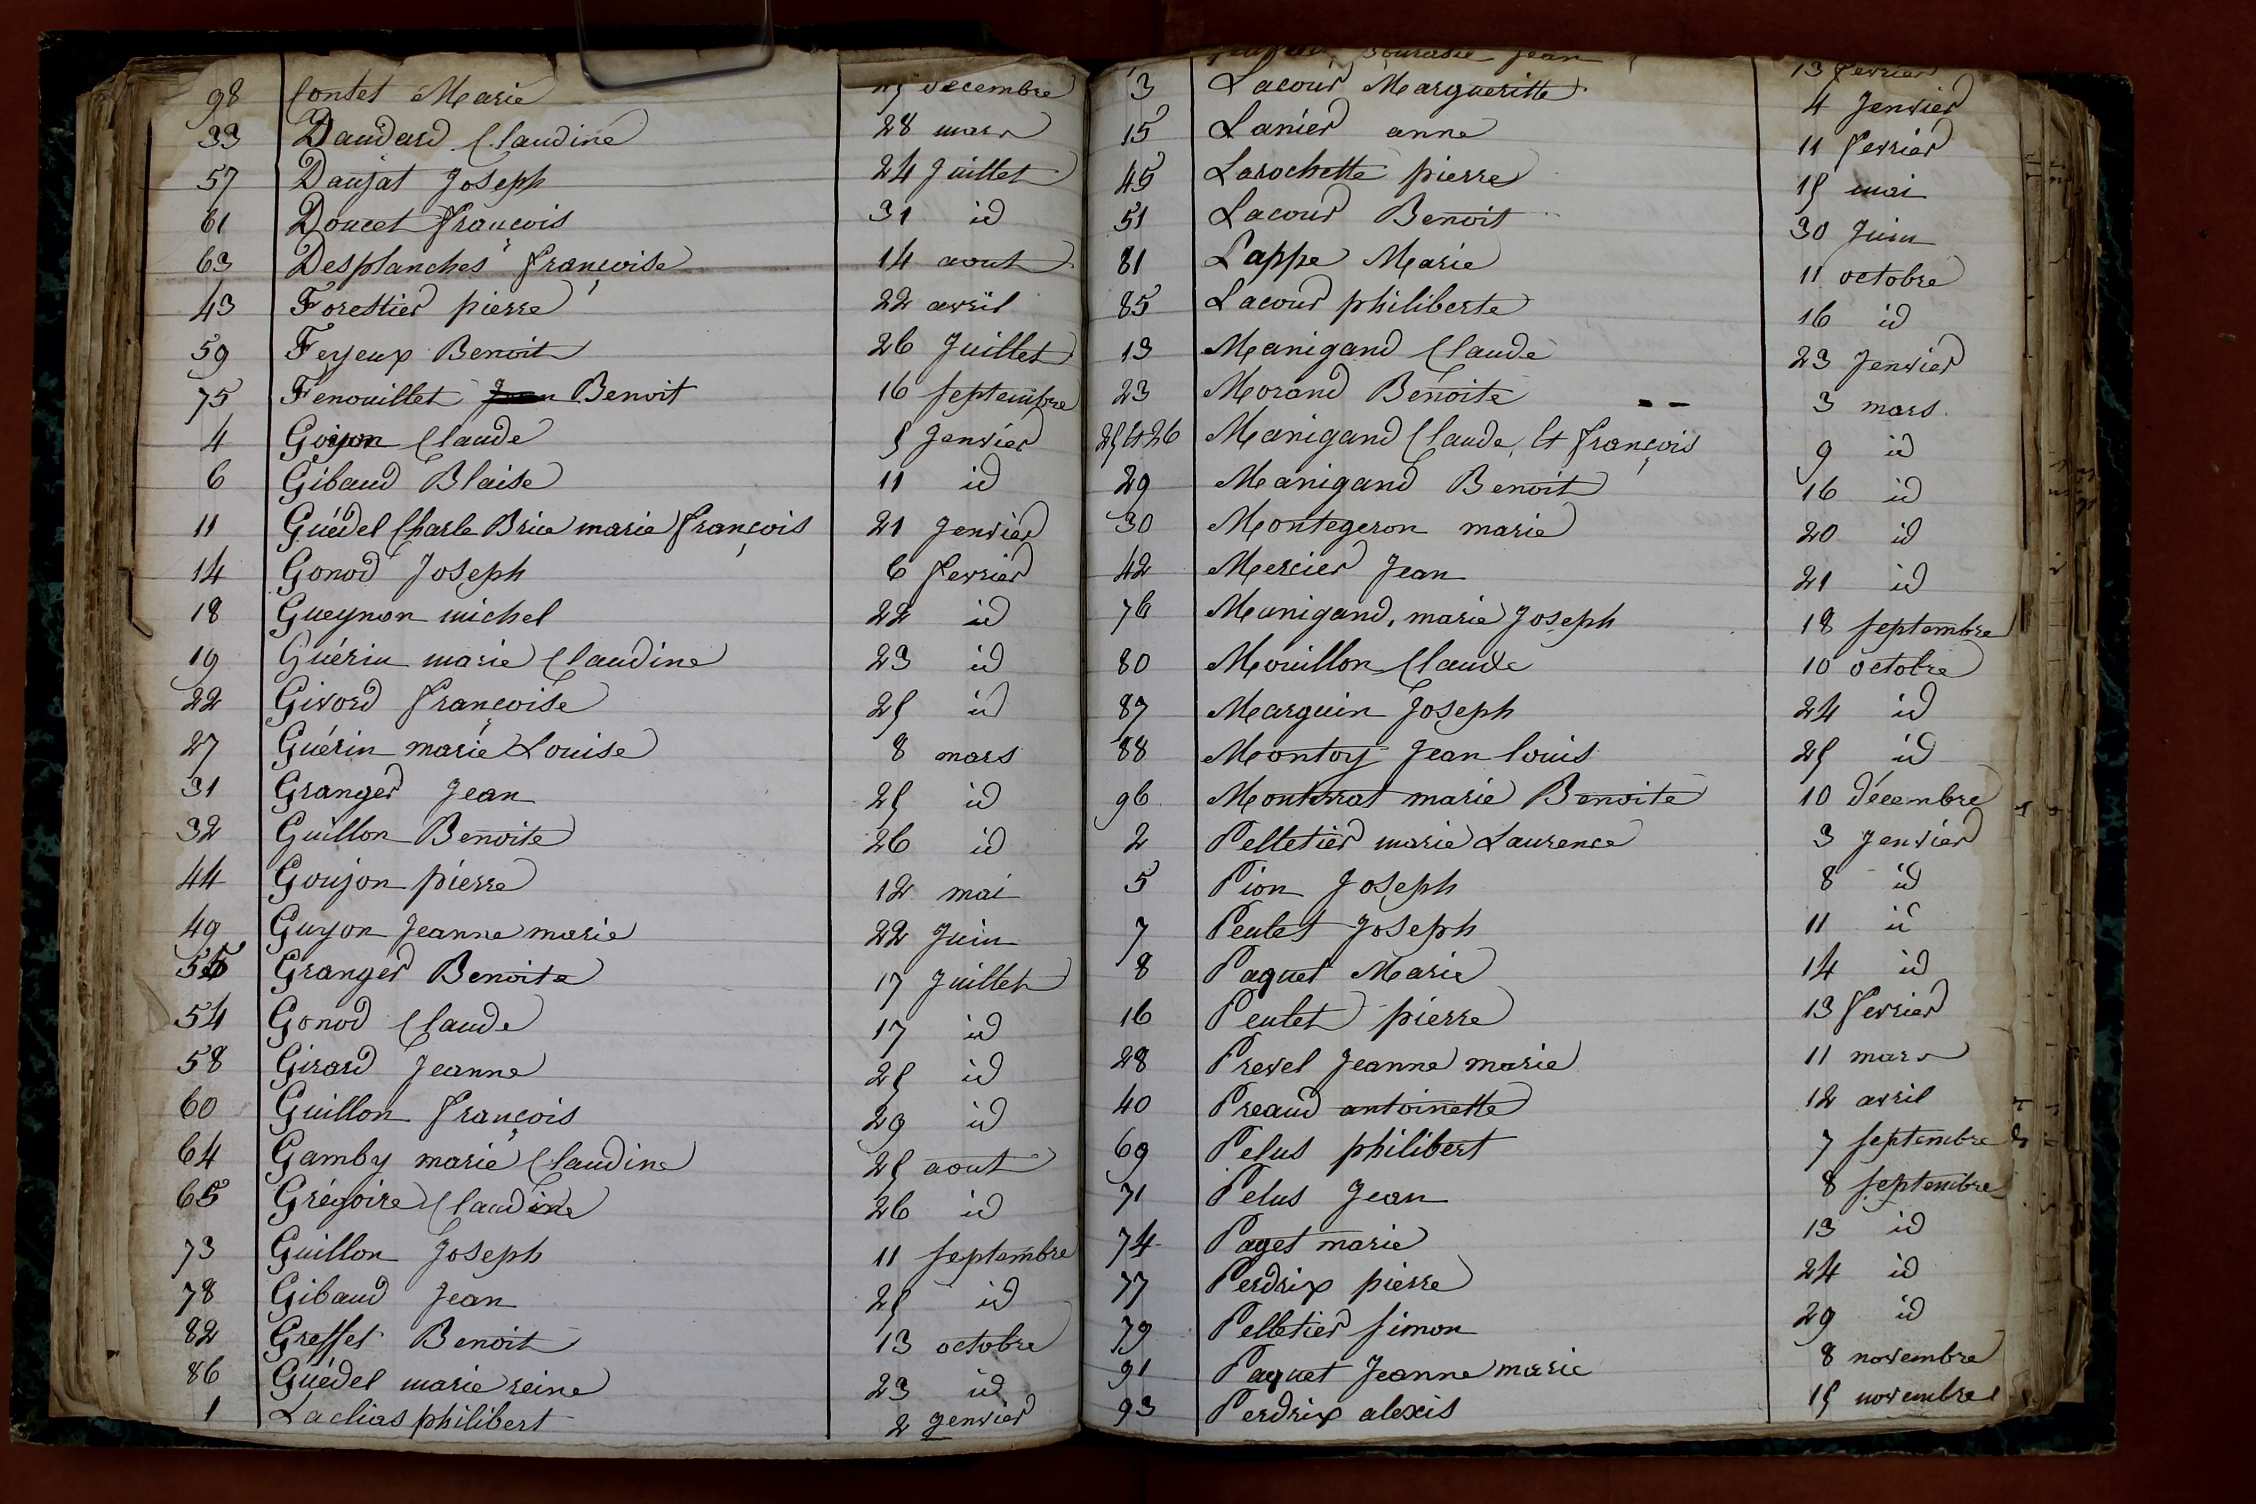 98 Contet Marie 25 décembre
33 Daudard Claudine 28 mars
57 Daujat Joseph 24 Juillet
61 Doucet françois 31 id
63 Desplanches françoise 14 aout
43 Forestier pierre 22 avril
59 Feyeux Benoit 26 Juillet
75 Fenouillet Benoit 16 septembre
4 Goyon Claude 5 Janvier
6 Gibaud Blaise 11 id
11 Guédel Charle Brice marie françois 21 Janvier
14 Gonod Joseph 6 fevrier
18 Gueynon michel 22 id
19 Guérin marie Claudine 23 id
22 Givord françoise 25 id
27 Guérin marie Louise 8 mars
31 Granger Jean 25 id
32 Guillon Benoite 26 id
44 Goujon pierre 12 mai
49 Guyon Jeanne marie 22 Juin
55 Granger Benoite 17 Juillet
54 Gonod Claude 17 id
58 Girard Jeanne 25 id
60 Guillon françois 29 id
64 Gamby marie Claudine 25 aout
65 Grégoire Claudine 26 id
73 Guillon Joseph 11 septembre
78 Gibaud Jean 25 id
82 Greffet Benoit 13 octobre
86 Guédel marie reine 23 id
1 Laclias philibert 2 Janvier
Jean 13 fevrier
3 Lacour Margueritte 4 Janvier
15 Lanier anne 11 fevrier
45 Larochette pierre 15 mai
51 Lacour Benoit 30 Juin
81 Lappe Marie 11 octobre
85 Lacour philiberte 16 id
13 Manigand Claude 23 Janvier
23 Morand Benoite 3 mars
25 et 26 Manigand Claude, et françois 9 id
29 Manigand Benoit 16 id
30 Montegeron marie 20 id
42 Mercier Jean 21 id
76 Manigand, marie Joseph 18 septembre
80 Mouillon Claude 10 octobre
87 Marguin Joseph 24 id
88 Montoy Jean louis 25 id
96 Monterrat marie Benoite 10 décembre
2 Pelletier marie Laurence 3 Janvier
5 Pion Joseph 8 id
7 Peulet Joseph 11 id
8 Paquet Marie 14 id
16 Peulet pierre 13 fevrier
28 Prevel Jeanne marie 11 mars
40 Preaud antoinette 12 avril
69 Pelus philibert 7 septembre
71 Pelus Jean 8 septembre
74 Paget marie 13 id
77 Perdrix pierre 24 id
79 Pelletier simon 29 id
91 Paquet Jeanne marie 8 novembre
93 Perdrix alexis 15 novembre